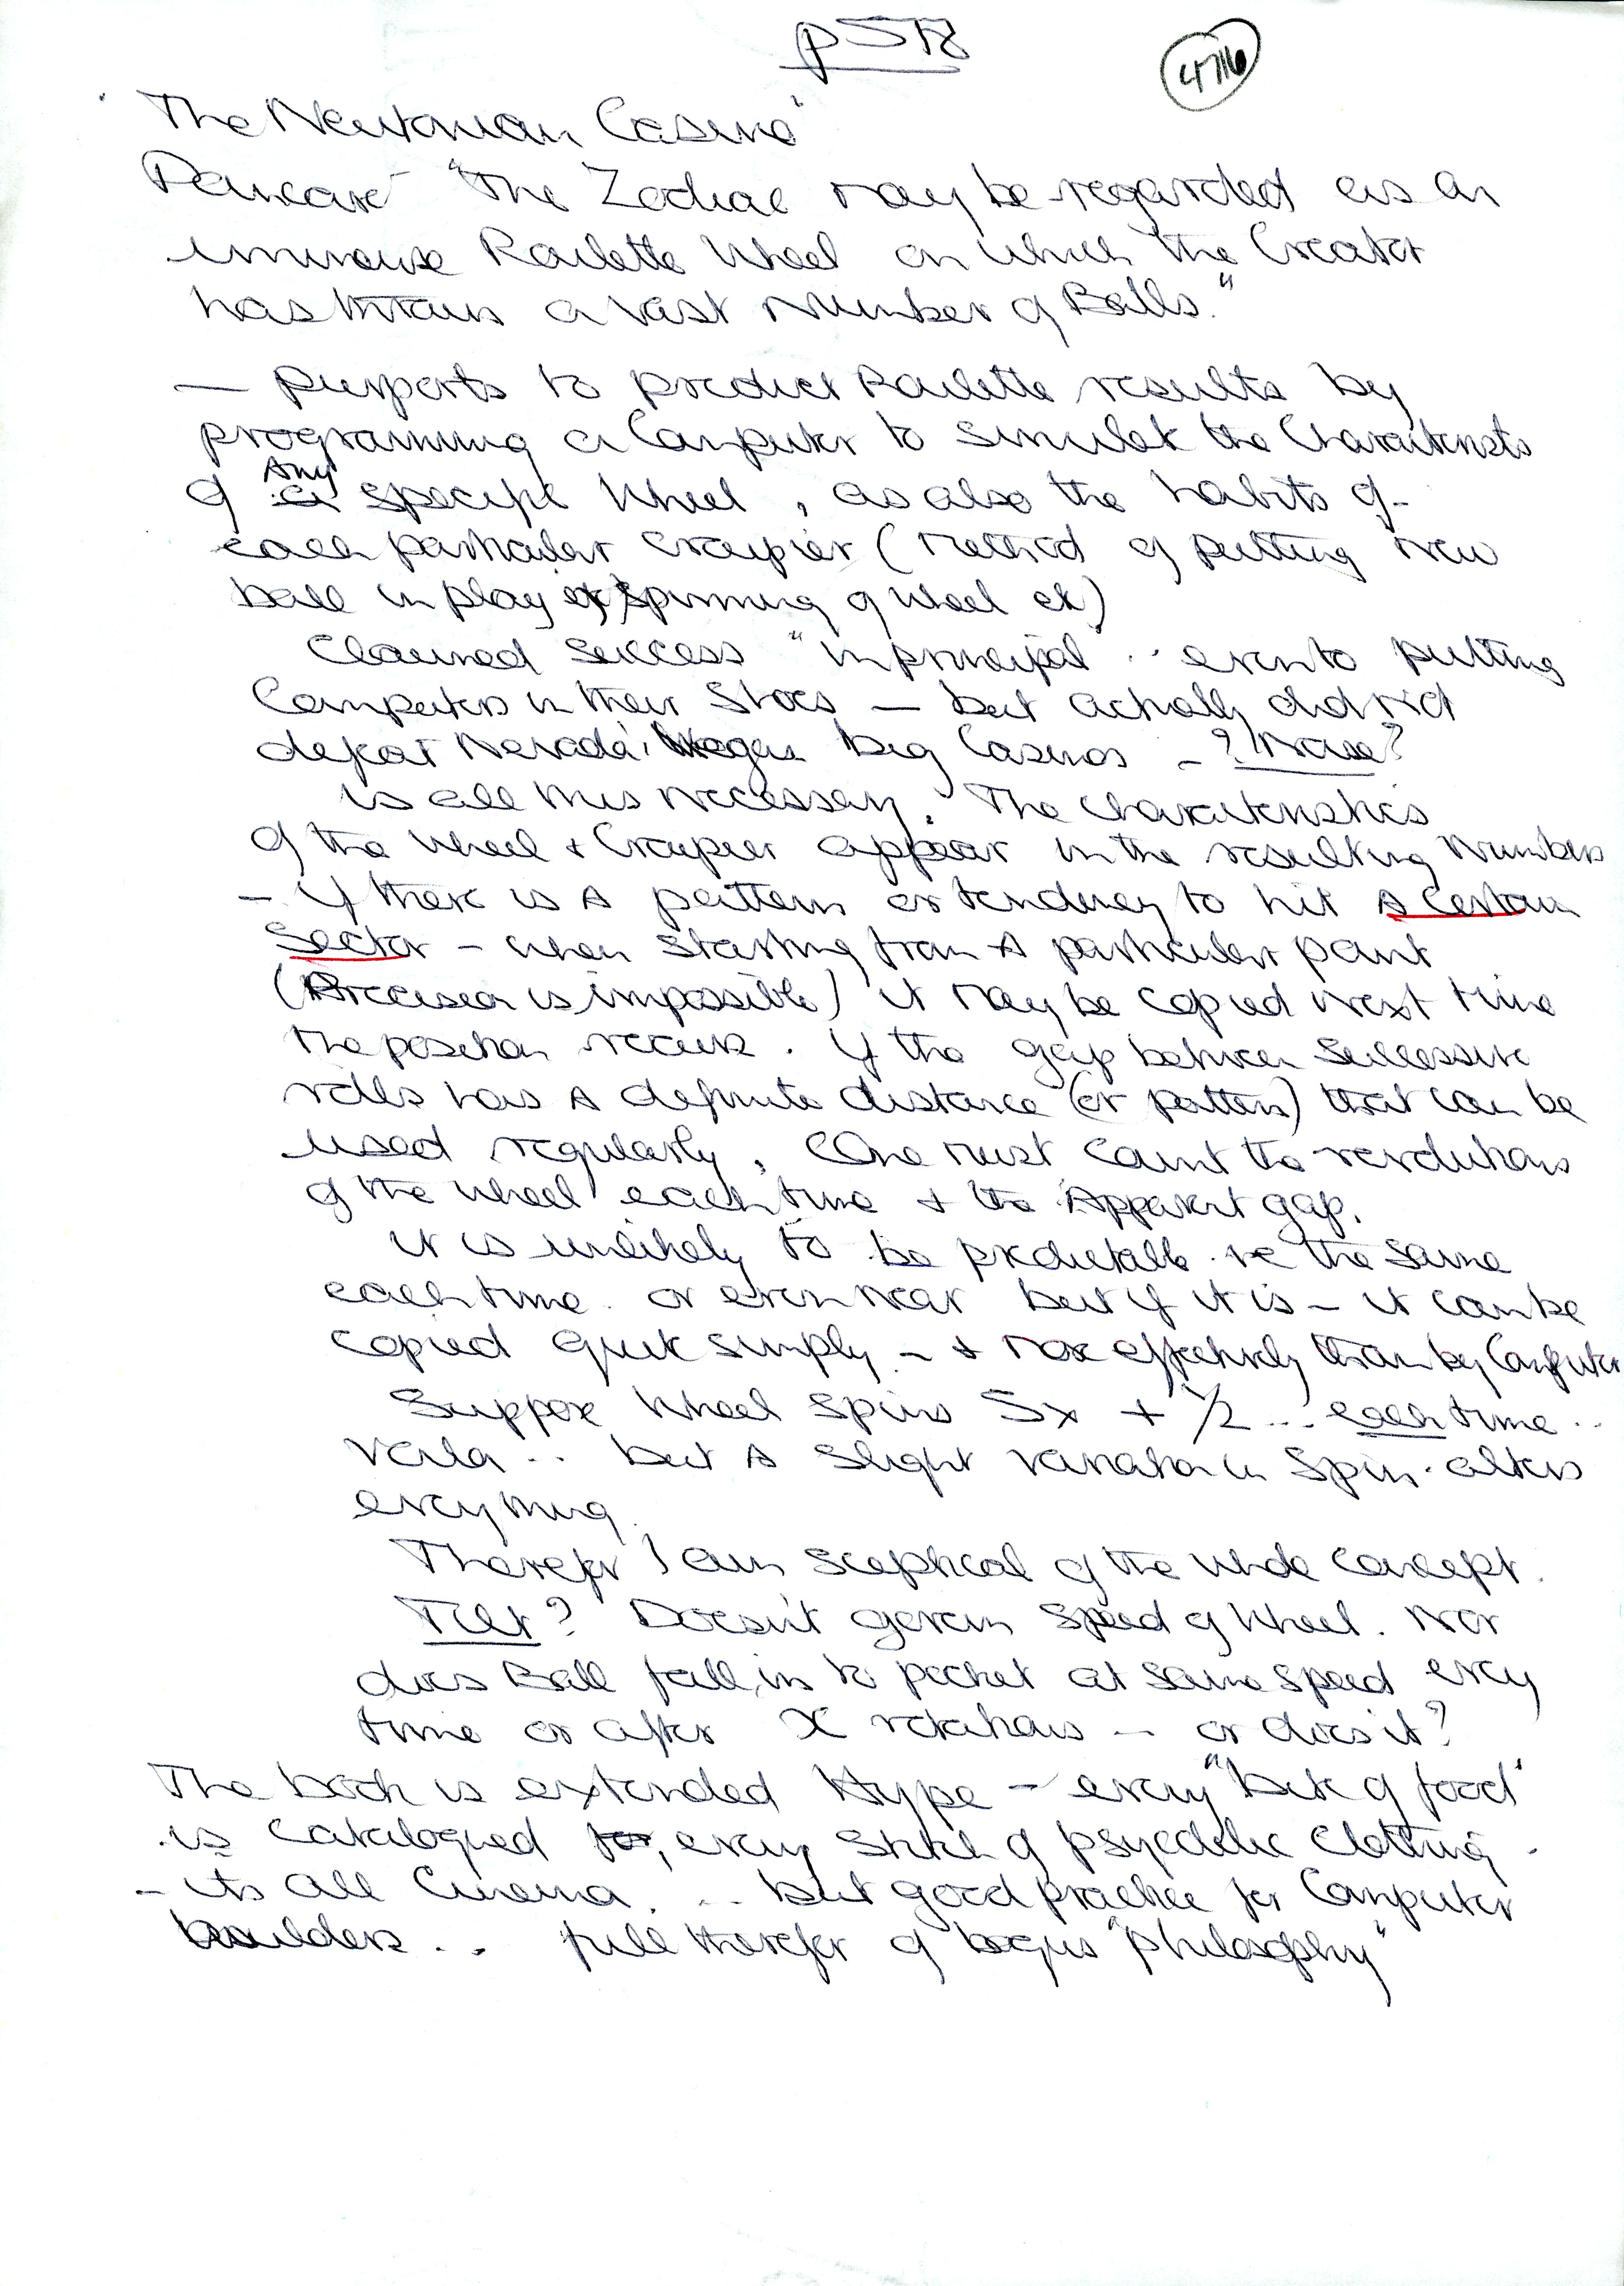 p518
4716
"The Newtonian Casino"
Poincaré "The Zodiac may be regarded as an
immense Roulette Wheel on which the Creator
has thrown a vast Number of Balls."
— purports to predict Roulette results by
programming a Computer to simulate the Charactersts
Any
of a specific Wheel, as also the habits of
each particular croupier (Method of putting new
ball in play spinning of wheel etc)
Claimed success "in principal" .. even to putting
Computers in their Shoes — but actually did not
defeat Nevada, big Casinos - ? Noise?
Is all this necessary. The characteristics
of the Wheel & Croupier appear in the resulting Numbers
- if there is A pattern or tendency to hit A Certain
Sector - when starting from A particular point
(Precision is impossible) it may be copied next time
the position recurs. If the gap between successive
rolls has A definite distance (or pattern) that can be
used regularly, (One must count the revolutions
of the wheel each time & the Apparent gap.
It is unlikely to be predictable ie the same
each time. or even near but if it is - it can be
copied quite simply - & more effectively than by Computer
Suppose Wheel spins 5x + 1/2 ... each time ..
Voila .. but A slight variation in Spin. alters
everything.
Therefor I am sceptical of the whole concept.
Tilt? Doesn't govern speed of Wheel. Nor
does Ball fall in to pocket at same speed every
time or after X rotations — or does it?
The book is extended Hype - every "bite of food"
is catalogued, every stitch of psycedelic Clothing.
- its all Cinema. ... but good practice for Computer
builders .. full therefor of bogus "philosophy"